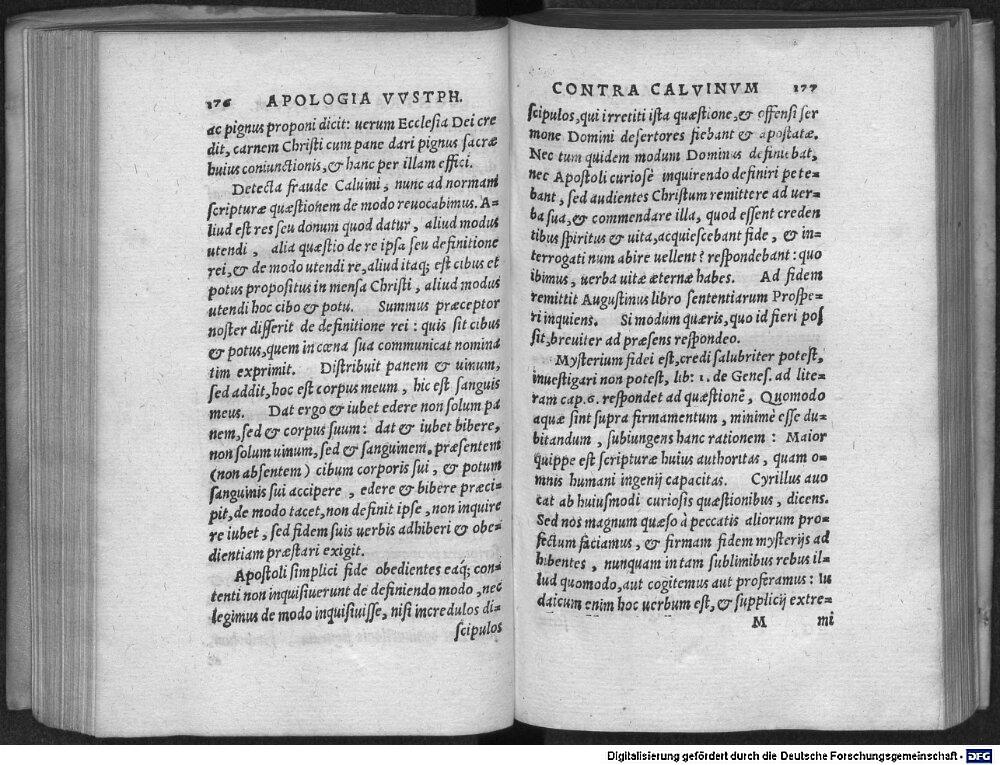 176 APOLOGIA VVSTPH.
ac pignus proponi dicit: uerum Ecclesia Dei cre
dit, carnem Christi cum pane dari pignus sacræ
huius coniunctionis, & hanc per illam effici.
Detecta fraude Caluini, nunc ad normam
scripturæ quæstionem de modo reuocabimus. A=
liud est res seu donum quod datur, aliud modus
utendi, alia quæstio de re ipsa seu definitione
rei, & de modo utendi re, aliud itaq; est cibus et
potus propositus in mensa Christi, aliud modus
utendi hoc cibo & potu. Summus præceptor
noster differit de definitione rei: quis sit cibus
& potus, quem in cœna sua communicat nomina
tim exprimit. Distribuit panem & uinum,
sed addit, hoc est corpus meum, hic est sanguis
meus. Dat ergo & iubet edere non solum pa
nem, sed & corpus suum: dat & iubet bibere,
non solum uinum, sed & sanguinem. præsentem
(non absentem) cibum corporis sui, & potum
sanguinis sui accipere, edere & bibere præci=
pit, de modo tacet, non definit ipse, non inquire
re iubet, sed fidem suis uerbis adhiberi & obe=
dientiam præstari exigit.
Apostoli simplici fide obedientes eaq; con=
tenti non inquisiuerunt de definiendo modo, nec
legimus de modo inquisiuisse, nisi incredulos di=
scipulos
CONTRA CALVINVM 177
scipulos, qui irretiti ista quæstione, & offensi ser
mone Domini desertores fiebant & apostatæ.
Nec tum quidem modum Dominus definiebat,
nec Apostoli curiosè inquirendo definiri pete=
bant, sed audientes Christum remittere ad uer=
ba sua, & commendare illa, quod essent creden
tibus spiritus & uita, acquiescebant fide, & in=
terrogati num abire uellent? respondebant: quo
ibimus, uerba uitæ æternæ habes. Ad fidem
remittit Augustinus libro sententiarum Prospe=
ri inquiens. Si modum quæris, quo id fieri pos
sit, breuiter ad præsens respondeo.
Mysterium fidei est, credi salubriter potest,
inuestigari non potest, lib: 1. de Genes. ad lite=
ram cap. 6. respondet ad quæstionē, Quomodo
aquæ sint supra firmamentum, minimè esse du=
bitandum, subiungens hanc rationem: Maior
quippe est scripturæ huius authoritas, quam o=
mnis humani ingenij capacitas. Cyrillus auo
cat ab huiusmodi curiosis quæstionibus, dicens.
Sed nos magnum quæso à peccatis aliorum pro=
fectum faciamus, & firmam fidem mysterijs ad
hibentes, nunquam in tam sublimibus rebus il=
lud quomodo, aut cogitemus aut proferamus: Iu
daicum enim hoc uerbum est, & supplicij extre=
M mi
Digitalisierung gefördert durch die Deutsche Forschungsgemeinschaft - DFG